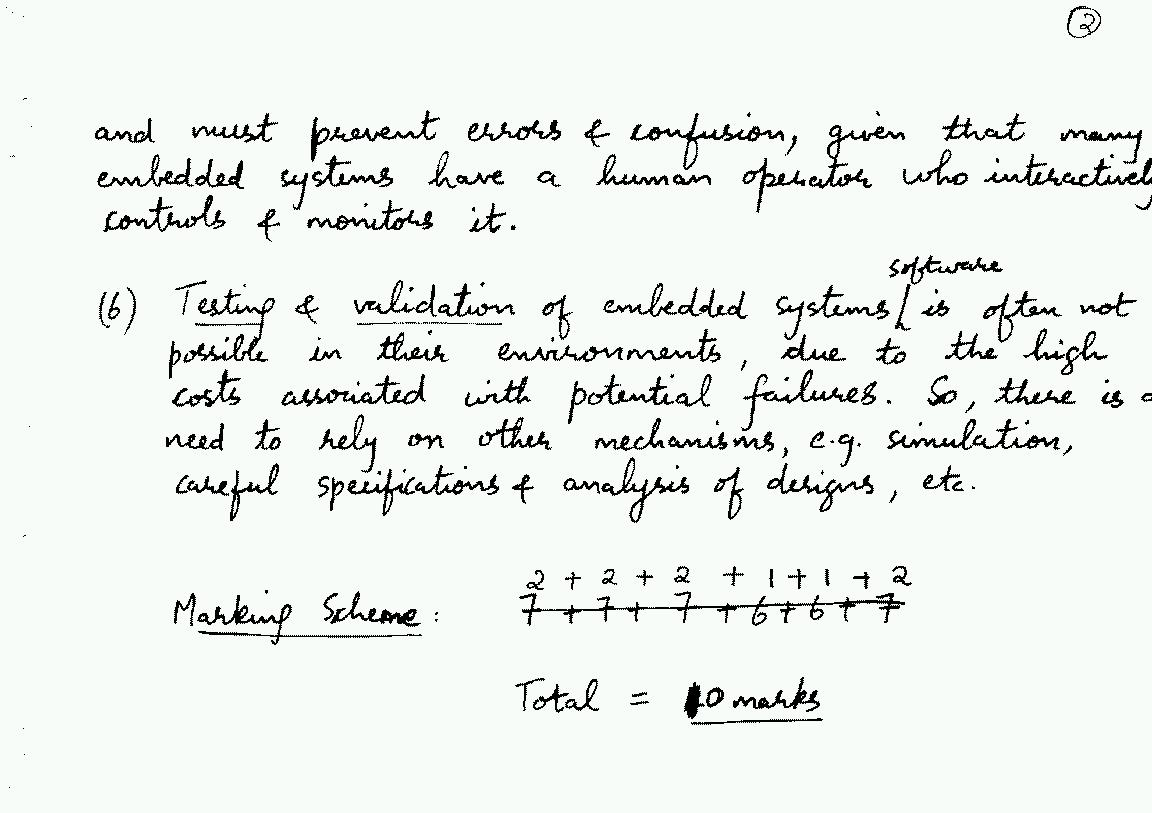 ②
and must prevent errors & confusion, given that many
embedded systems have a human operator who interactively
controls & monitors it.
software
(6) Testing & validation of embedded systems is often not
possible in their environments, due to the high
costs associated with potential failures. So, there is a
need to rely on other mechanisms, e.g. simulation,
careful specifications & analysis of designs, etc.
2 + 2 + 2 + 1 + 1 + 2
Marking Scheme: 7 + 7 + 7 + 6 + 6 + 7
Total = 10 marks